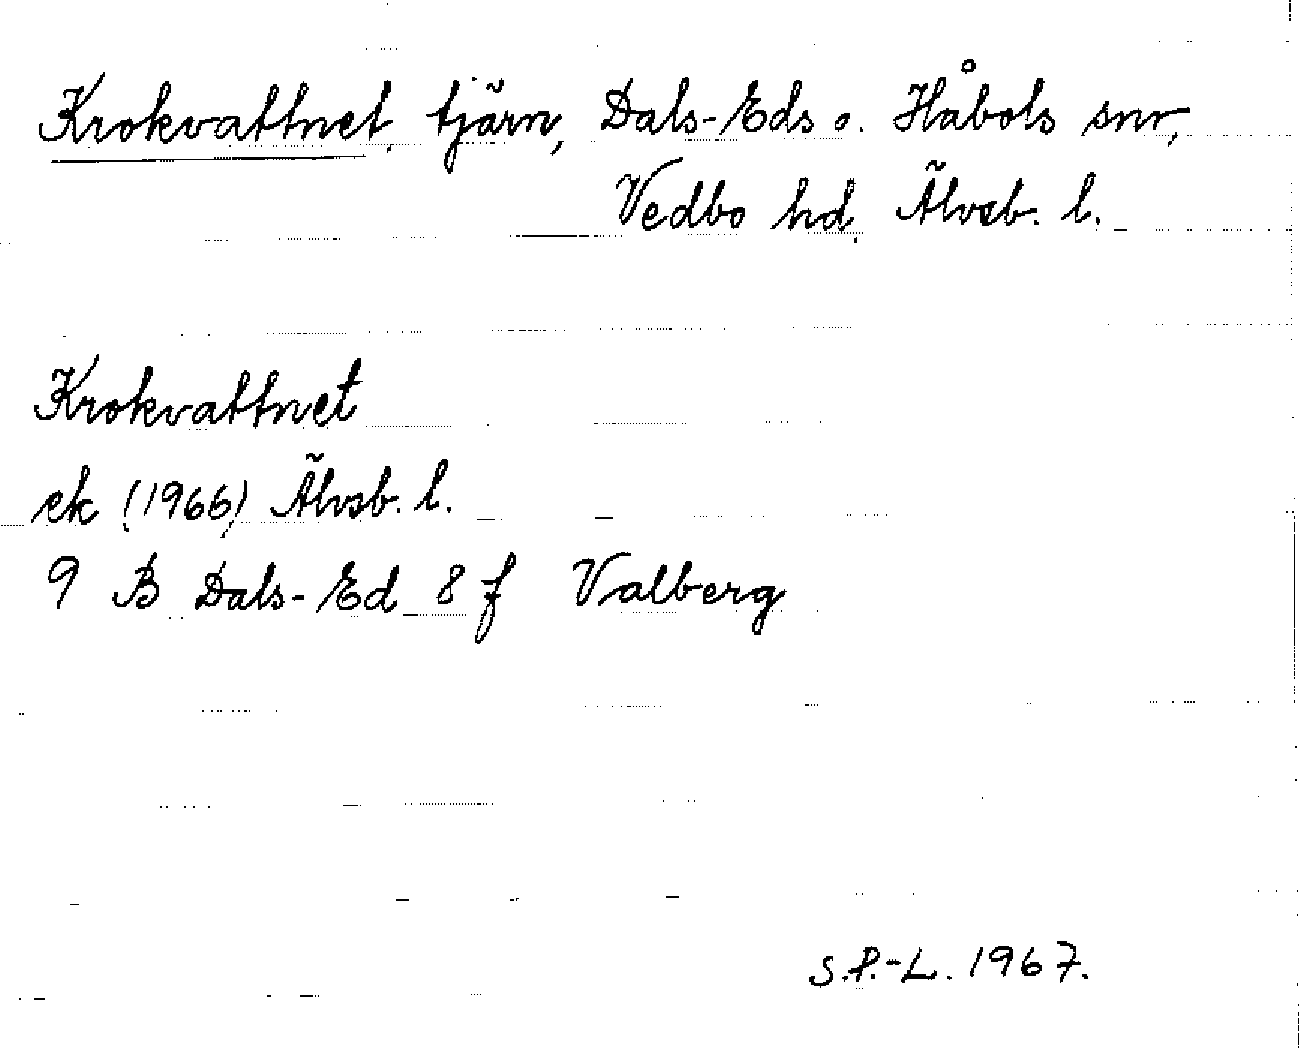 Krokvattnet, tjärn, Dals-Eds o. Håbols snr,
Vedbo hd. Älvsb. l.
Krokvattnet
ek (1966) Älvsb. l.
9 B Dals-Ed 8 f Valberg
S.P.-L. 1967.